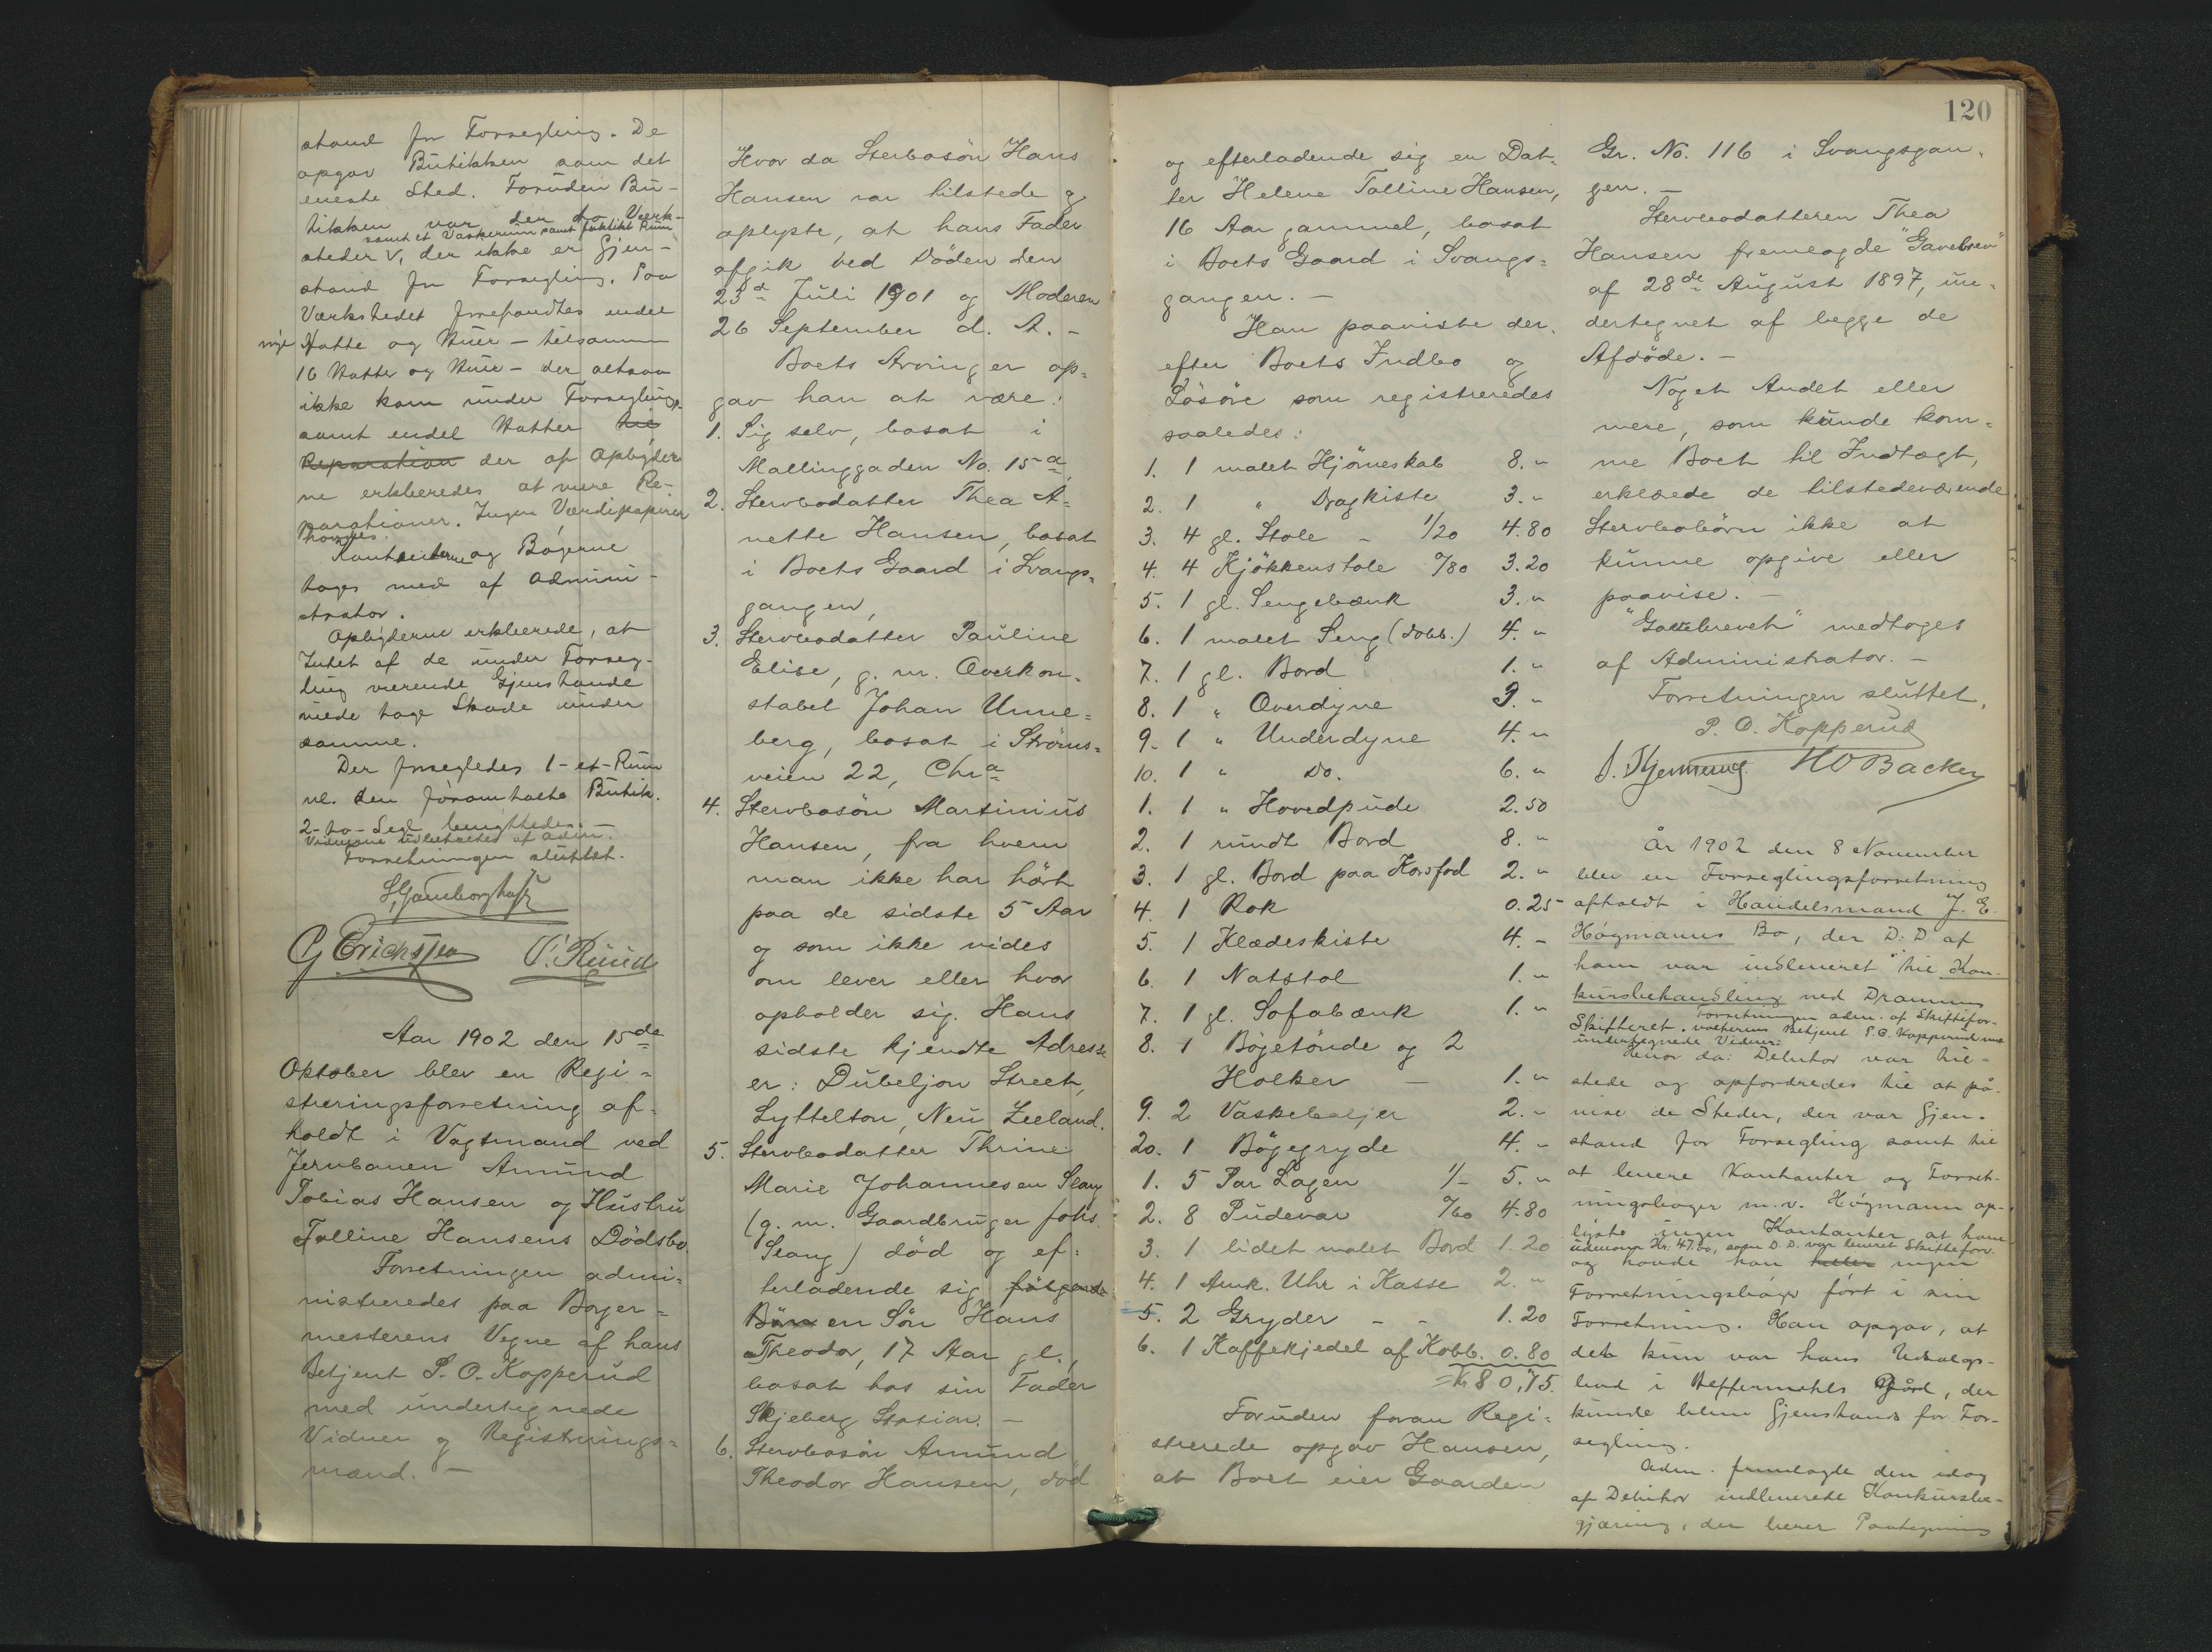 stand for Forsegling. De
opgav Butikken som det
eneste Sted. Foruden Bu-
tikken var der to Værk-
samt et Vaskerum samt Rum
steder V, der ikke er Gjen-
stand for Forsegling. Paa
Værkstedet forefandtes endel
nye Hatte og Huer – tilsammen
16 Hatter og Huer – der altsaa
ikke kom under Forsegling,
samt endel Hatter til
Reparation der af Opbyder-
ne erklæredes at være Re-
parationer. Ingen Værdipapirer
havdes.
Kontanterne og Bøgerne
toges med af Admini-
strator.
Opbyderne erklærede, at
Intet af de under Forseg-
ling værende Gjenstande
vilde tage Skade under
samme.
Der forsegledes 1 - et - Rum
nl. den foromtalte Butik.
2 - to - Segl benyttedes. –
Vidnerne udbetaltes af Adm.
Forretningen sluttet.
G Erichsen O. Ruud
Aar 1902 den 15de
Oktober blev en Regi=
streringsforretning af=
holdt i Vagtmand ved
Jernbanen Amund
Tobias Hansen og Hustru
Talline Hansens Dödsbo.
Forretningen admi=
nistreredes paa Borger=
mesterens Vegne af hans
Betjent P. O. Kopperud
med undertegnede
Vidner og Registrerings=
mænd. –
Hvor da Sterbosön Hans
Hansen var tilstede og
oplyste, at hans Fader
afgik ved Döden den
23d Juli 1901 og Moderen
26 September d. A. –
Boets Arvinger op=
gav han at være:
1. Sig selv, bosat i
Mallinggaden No. 15a
2. Stervbodatter Thea A=
nette Hansen, bosat
i Boets Gaard i Svangs=
gangen,
3. Stervbodatter Pauline
Elise, g. m. Overkon=
stabel Johan Unne=
berg, bosat i Ströms=
veien 22, Chra
4. Stervbosön Martinius
Hansen, fra hvem
man ikke har hört
paa de sidste 5 Aar
og som ikke vides
om lever eller hvor
opholder sig. Hans
sidste kjendte Adresse
er: Dubeljon Street,
Lyttelton, Neu Zeeland.
5. Stervbodatter Thrine
Marie Johannesen Slang
(g. m. Gaardbruger Johs.
Slang) död og ef=
terladende sig fölgende
Börn en Sön Hans
Theodor, 17 Aar gl.,
bosat hos sin Fader
Skjeberg Station. –
6. Stervbosön Amund
Theodor Hansen, död
120
og efterladende sig en Dat=
ter Helene Talline Hansen,
16 Aar gammel, bosat
i Boets Gaard i Svangs=
gangen. –
Han paaviste der=
efter Boets Indbo og
Lösöre som registreredes
saaledes:
1. 1 malet Hjörneskab 8. "
2. 1 " Dragkiste 3. "
3. 4 gl. Stole – 1/20 4.80
4. 4 Kjökkenstole 0/80 3.20
5. 1 gl. Sengebænk 3. "
6. 1 malet Seng (dobb.) 4. "
7. 1 gl. Bord 1. "
8. 1 " Overdyne 9. "
9. 1 " Underdyne 4. "
10. 1 " Do. 6. "
1. 1 " Hovedpude 2.50
2. 1 rundt Bord 8. "
3. 1 gl. Bord paa Korsfod 2. "
4. 1 Rok 0.25
5. 1 Klædeskiste 4. –
6. 1 Natstol 1. "
7. 1 gl. Sofabænk 1. "
8. 1 Bögetönde og 2
Holker – 1. "
9. 2 Vaskebaljer 2. "
20. 1 Bögegryde 4. "
1. 5 Par Lagen 1/– 5. "
2. 8 Pudevar 0/60 4.80
3. 1 lidet malet Bord 1.20
4. 1 Amk. Uhr i Kasse 2. "
5. 2 Gryder – – 1.20
6. 1 Kaffekjedel af Kobb. 0.80
= Kr 80,75.
Foruden foran Regi=
strerede opgav Hansen,
at Boet eier Gaarden
Gr. No. 116 i Svangsgan=
gen. –
Stervbodatteren Thea
Hansen fremlagde "Gavebrev"
af 28de August 1897, un=
dertegnet af begge de
Afdöde. –
Noget Andet eller
mere, som kunde kom=
me Boet til Indtægt,
erklærede de tilstedeværende
Stervbobörn ikke at
kunne opgive eller
paavise. –
"Gavebrevet" medtoges
af Administrator. –
Forretningen sluttet.
P. O. Kopperud
HO Backer
År 1902 den 8 November
blev en Forseglingsforretning
afholdt i Handelsmand J. E.
Högmanns Bo, der D. D. af
ham var indleveret til Kon-
kursbehandling ved Drammens
Skifteret. Forretningen adm. af Skiftefor-
valterens Betjent P. O. Kopperud med
undertegnede Vidner:
Hvor da: Debitor var til-
stede og opfordredes til at på-
vise de Steder, der var Gjen-
stand for Forsegling samt til
at levere Kontanter og Forret-
ningsböger m. v. Högmann op-
lyste ingen Kontanter at have
udenom Kr. 47.00, som D. D. var leveret Skifteforv.
og havde han heller ingen
Forretningsböger fört i sin
Forretning. Han opgav, at
det kun var hans Udsalgs-
bod i Heffermehls Gård, der
kunde blive Gjenstand for For-
segling.
Adm. fremlagte den idag
af Debitor indleverede Konkursbe-
gjæring, der bærer Paategning